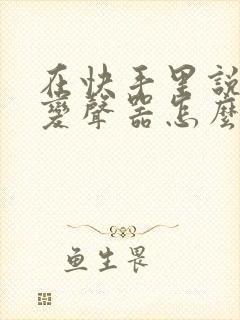 在快手里說
變聲器怎麼
鱼生畏